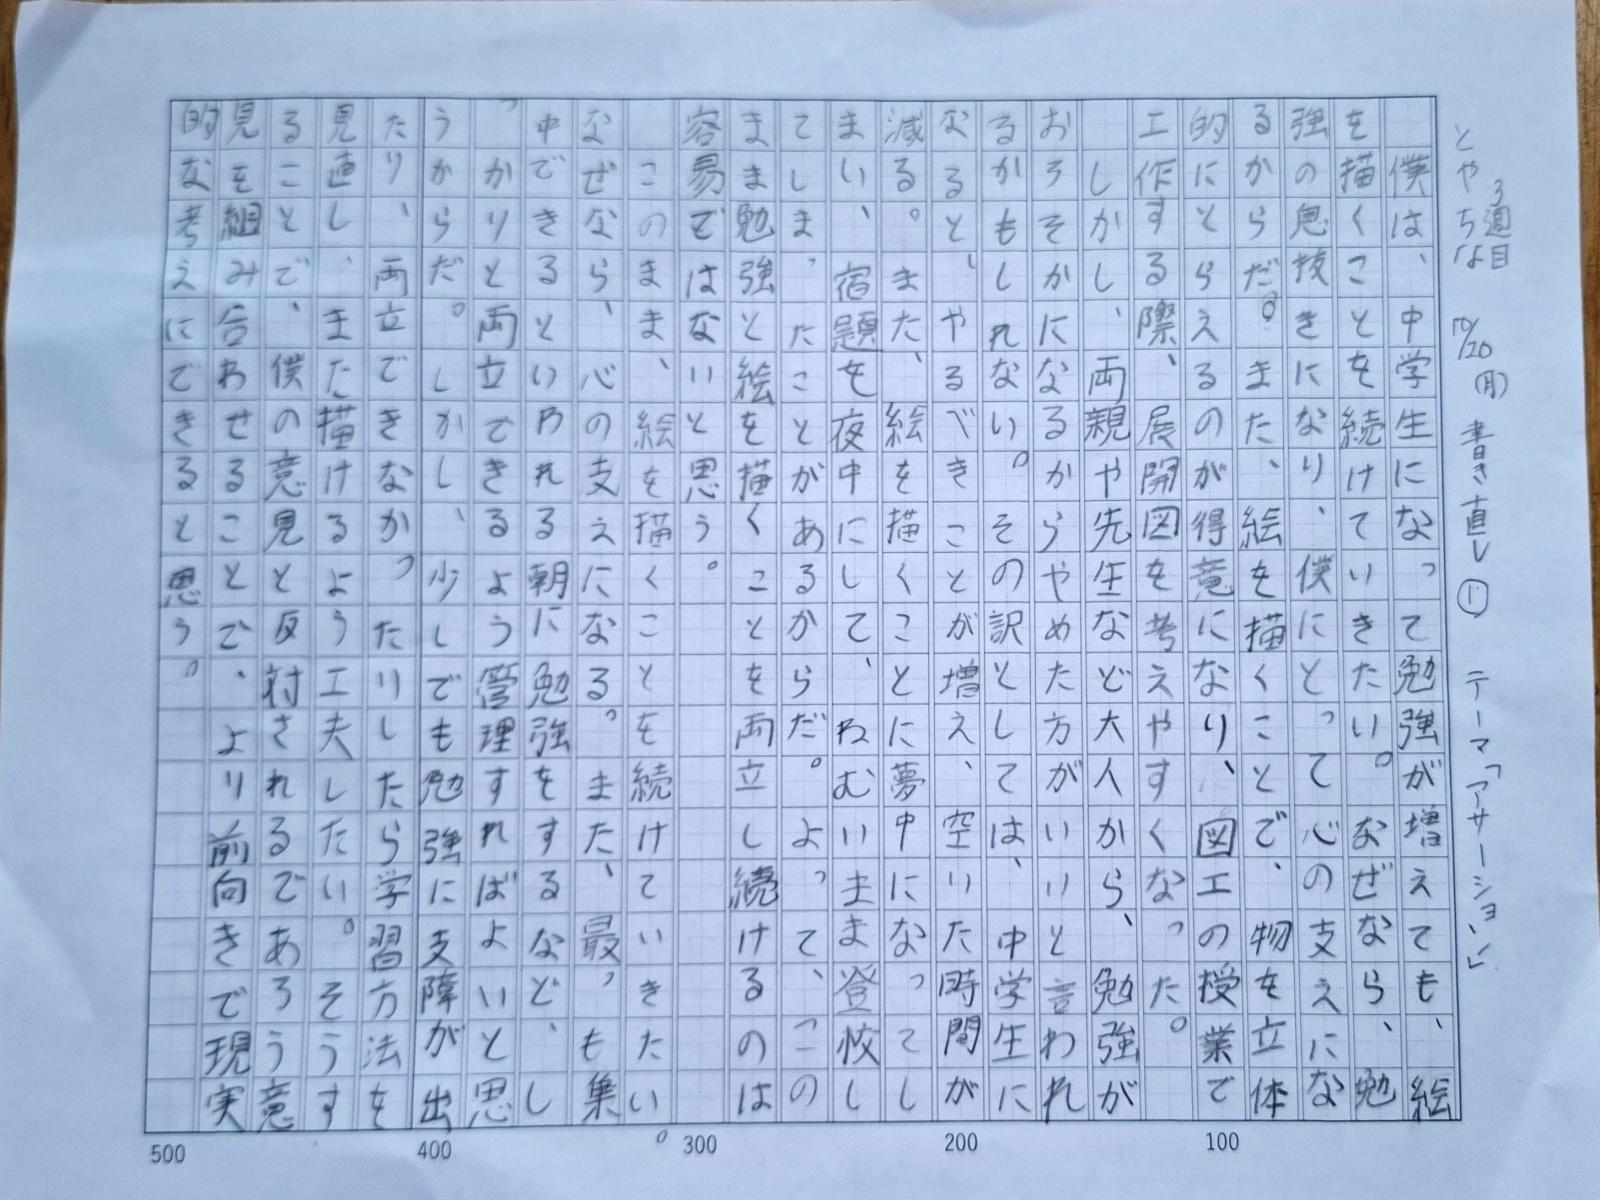 3週目 10/20(月) 書き直し① テーマ「アサーション」
とやちな
僕は、中学生になって勉強が増えても、絵
を描くことを続けていきたい。なぜなら、勉
強の息抜きになり、僕にとって心の支えにな
るからだ。また、絵を描くことで、物を立体
的にとらえるのが得意になり、図工の授業で
工作する際、展開図を考えやすくなった。
しかし、両親や先生など大人から、勉強が
おろそかになるからやめた方がいいと言われ
るかもしれない。その訳としては、中学生に
なると、やるべきことが増え、空いた時間が
減る。また、絵を描くことに夢中になってし
まい、宿題を夜中にして、ねむいまま登校し
てしまったことがあるからだ。よって、この
まま勉強と絵を描くことを両立し続けるのは
容易ではないと思う。
このまま、絵を描くことを続けていきたい。
なぜなら、心の支えになる。また、最も集
中できるといわれる朝に勉強をするなど、し
っかりと両立できるよう管理すればよいと思
うからだ。しかし、少しでも勉強に支障が出
たり、両立できなかったりしたら学習方法を
見直し、また描けるよう工夫したい。そうす
ることで、僕の意見と反対されるであろう意
見を組み合わせることで、より前向きで現実
的な考えにできると思う。
500 400 300 200 100